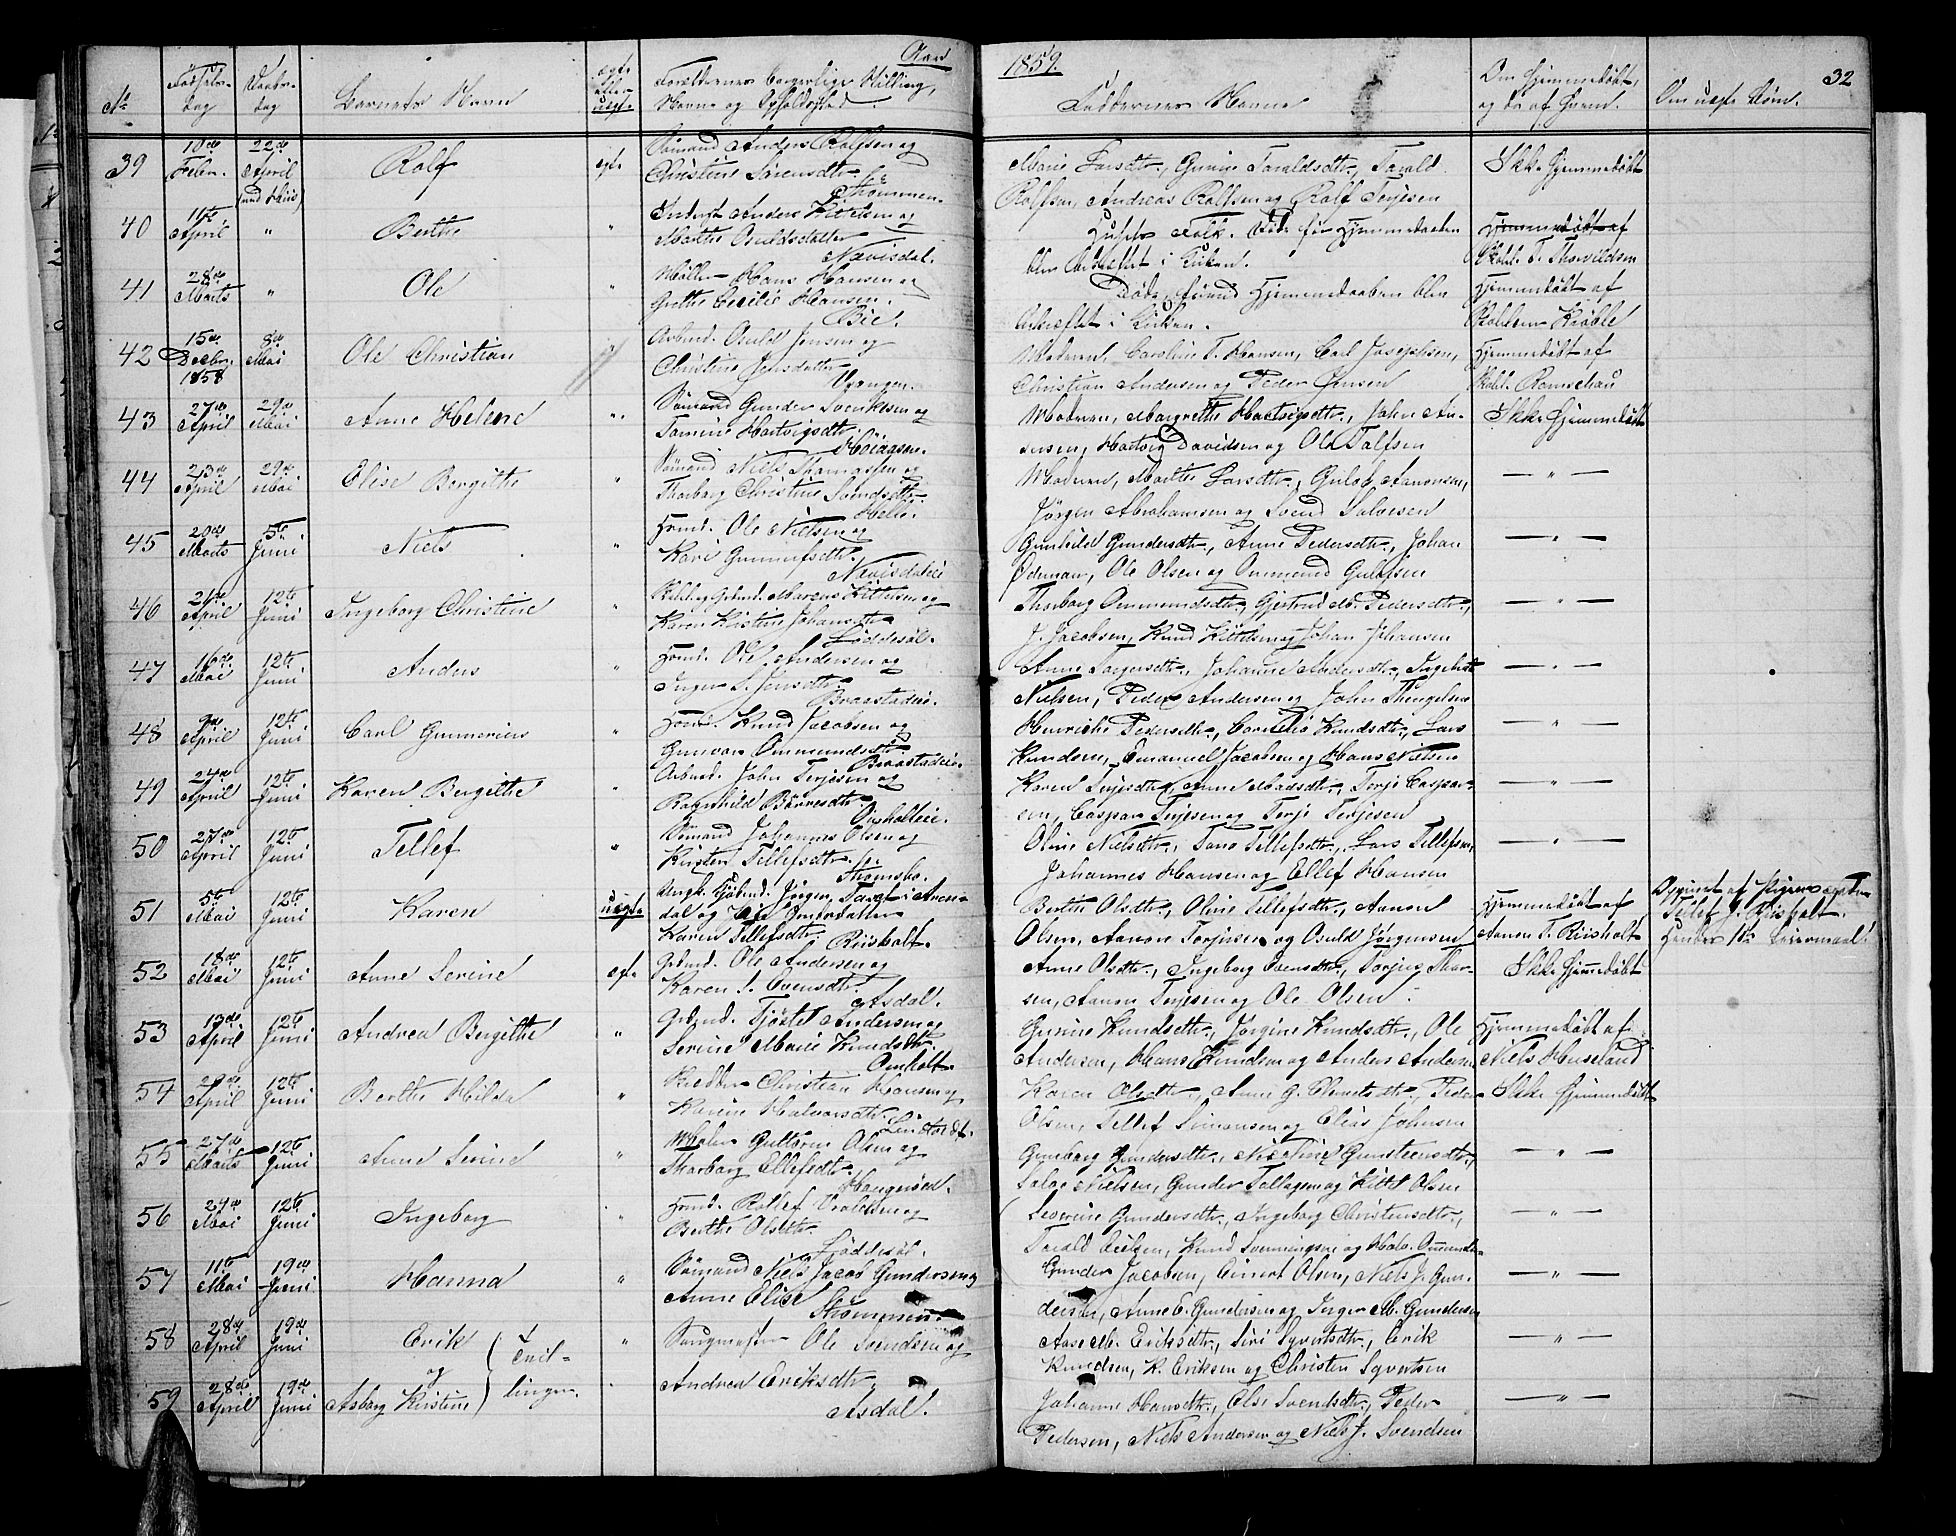 Aar 1859. 32
No Fødsels- dag Daabs- dag Barnets Navn egte eller uegte Forældrenes borgerlige Stilling, Navne og Opholdssted. Faddernes Navne Om hjemmedøbt, og da af hvem. Om uegte Børn.
39 10de Febr. 22de April Rolf egte Sømand Anders Rolfsen og
Christine Sørensdtr. Strømmen
Marie Larsdtr., Gunine Taraldsdtr., Tarald
Rolfsen, Andreas Rolfsen og Rolf Terjesen
Ikke hjemmedøbt
40 11te April " Berthe " Inderst Anders Kittelsen og
Marthe Osuldsdatter
Nævisdal.
Huusets Folk. Døde før Hjemmedaaben
blev bekræftet i Kirken.
Hjemmedøbt af
Skoleh. T. Thorvildsen
41 28de Marts " Ole " Møller Hans Hansen og
Grethe Cecilie Hansen.
Bie.
Døde, førend Hjemmedaaben blev
bekræftet i Kirken.
Hjemmedøbt af
42 15de Decbr. 1858 8de Mai Ole Christian " Arbmd. Osuld Jensen og
Christine Jensdatter
Vrengen.
Moderen, Caroline T. Hansen, Carl Josephsen,
Christian Andersen og Peder Jansen
Hjemmedøbt af
43 27de April 29de Mai Anne Helene " Sømand Gunder Svenksen og
Tomine Hartvigsdtr.
Moderen, Margrethe Hartvigsdtr., John An-
dersen, Hartvig Davidsen og Ole Tolfsen
Ikke hjemmedøbt
44 23de April 29de Mai Elise Borgithe " Sømand Niels Thomassen og
Thorborg Christine Svendsdtr.
Helle.
Moderen, Marthe Larsdtr., Gulov Aanonsen,
Jørgen Abrahamsen og Svend Salvesen
— " —
45 20de Marts 5te Juni Niels " Hmd. Ole Nielsen og
Kari Gunnulfsdtr.
Nævisdaleie
Gunhild Gundersdtr., Anne Pedersdtr., Johan
Ødeman, Ole Olsen og Ommund Gulofsen
— " —
46 21de April 12te Juni Ingeborg Christine " Marcus Kittelsen og
Karen Kirstine Johansdtr.
Løddesøl.
Thorborg Ommundsdtr., Gjertrud do. Pedersdtr.,
J. Jacobsen, Knud Kittelsen og Johan Johansen
— " —
47 16de Mai 12te Juni Anders " Hmd. Ole Andersen og
Inger S. Jensdtr.
Braastadeie.
Anne Torgersdtr., Johanne Madersdtr.,
Nielsen, Peder Andersen og John Thugelsen
— " —
48 9de April 12te Juni Carl Gumerius " Hmd. Knud Jacobsen og
Gunvor Ommundsdtr.
Braastadeie.
Henriche Pedersdtr., Cornelia Knudsdtr., Lars
Knudsen, Emanuel Jacobsen og Hans Nielsen
— " —
49 24de April 12te Juni Karen Birgithe " Arbmd. John Terjesen og
Ragnhild Børresdtr.
Karen Terjesdtr., Anne Madsdtr., Terje Caspar-
sen, Caspar Terjesen og Terje Terjesen
— " —
50 27de April 12te Juni Tellef " Sømand Johannes Olsen og
Kirsten Tellefsdtr.
Strømsbo.
Oline Nielsdtr., Tone Tellefsdtr., Lars Tellefsen,
Johannes Hansen og Ellef Hansen
— " —
51 5te Mai 12te Juni Karen uegte Ungk. Jørgen i Aren-
dal og
Karen Tellefsdtr. Riisholt.
Berthe Olsdtr., Oline Tellefsdtr., Aanon
Olsen, Aanon Terjesen og Osuld Jørgensen
Hjemmedøbt af
Aanon T. Riisholt
Opgivet af Pigens
Tellef J. Riisholt.
Hendes 1ste Leiermaal.
52 18de Mai 12te Juni Anne Serine egte Grbmd. Ole Andersen og
Karen S. Evensdtr.
Asdal.
Anne Olsdtr., Ingeborg Evensdtr.,
sen, Aanon Terjesen og Ole Olsen
Ikke hjemmedøbt
53 13de April 12te Juni Andrea Bergithe " Grbmd. Tjøstel Andersen og
Serine Marie Knudsdtr.
Omholt.
Gunine Knudsdtr., Jørgine Knudsdtr., Ole
Andersen, Hans Knudsen og Anders Andersen
Hjemmedøbt af
Niels Huseland
54 29de April 12te Juni Berthe Hilda " Christian Hansen og
Karine Halvorsdtr.
Karen Olsdtr., Anne G. Clemetsdtr., Peder
Olsen, Tellef Simonsen og Elias Johnsen
Ikke hjemmedøbt
55 27de Marts 12te Juni Anne Serine " Guttorm Olsen og
Thorborg Ellefsdtr.
Gunborg Gundersdtr., Nicoline Gunsteensdtr.,
Salve Nielsen, Gunder Tellagsen og Kittel Olsen
— " —
56 29de Mai 12te Juni Ingeborg " Hmd. Rollef og
Berthe Olsdtr.
Løddesøl.
Severine Gundersdtr., Ingeborg Christensdtr.,
— " —
57 11te Mai 19de Juni Hanna " Sømand Niels Jacob Gundersen og
Anne Elise
Strømmen
Gunder Jacobsen, Einert Olsen, Niels J. Gun-
dersen, Anne E. Gundersen og Inger M. Gundersen
— " —
58 28de April 19de Juni Erik " Ole Svendsen og
og Tvil-
linger
Aase M. Eriksdtr., Siri Syvertsdtr., Erik
Knudsen, K. Eriksen og Christen Syvertsen
— " —
59 28de April 19de Juni Asborg Kirstine Andrea Eriksdtr.
Asdal.
Johanne Hansdtr., Else Svendsdtr., Peder
Pedersen, Niels Andersen og Niels J. Svendsen
— " —